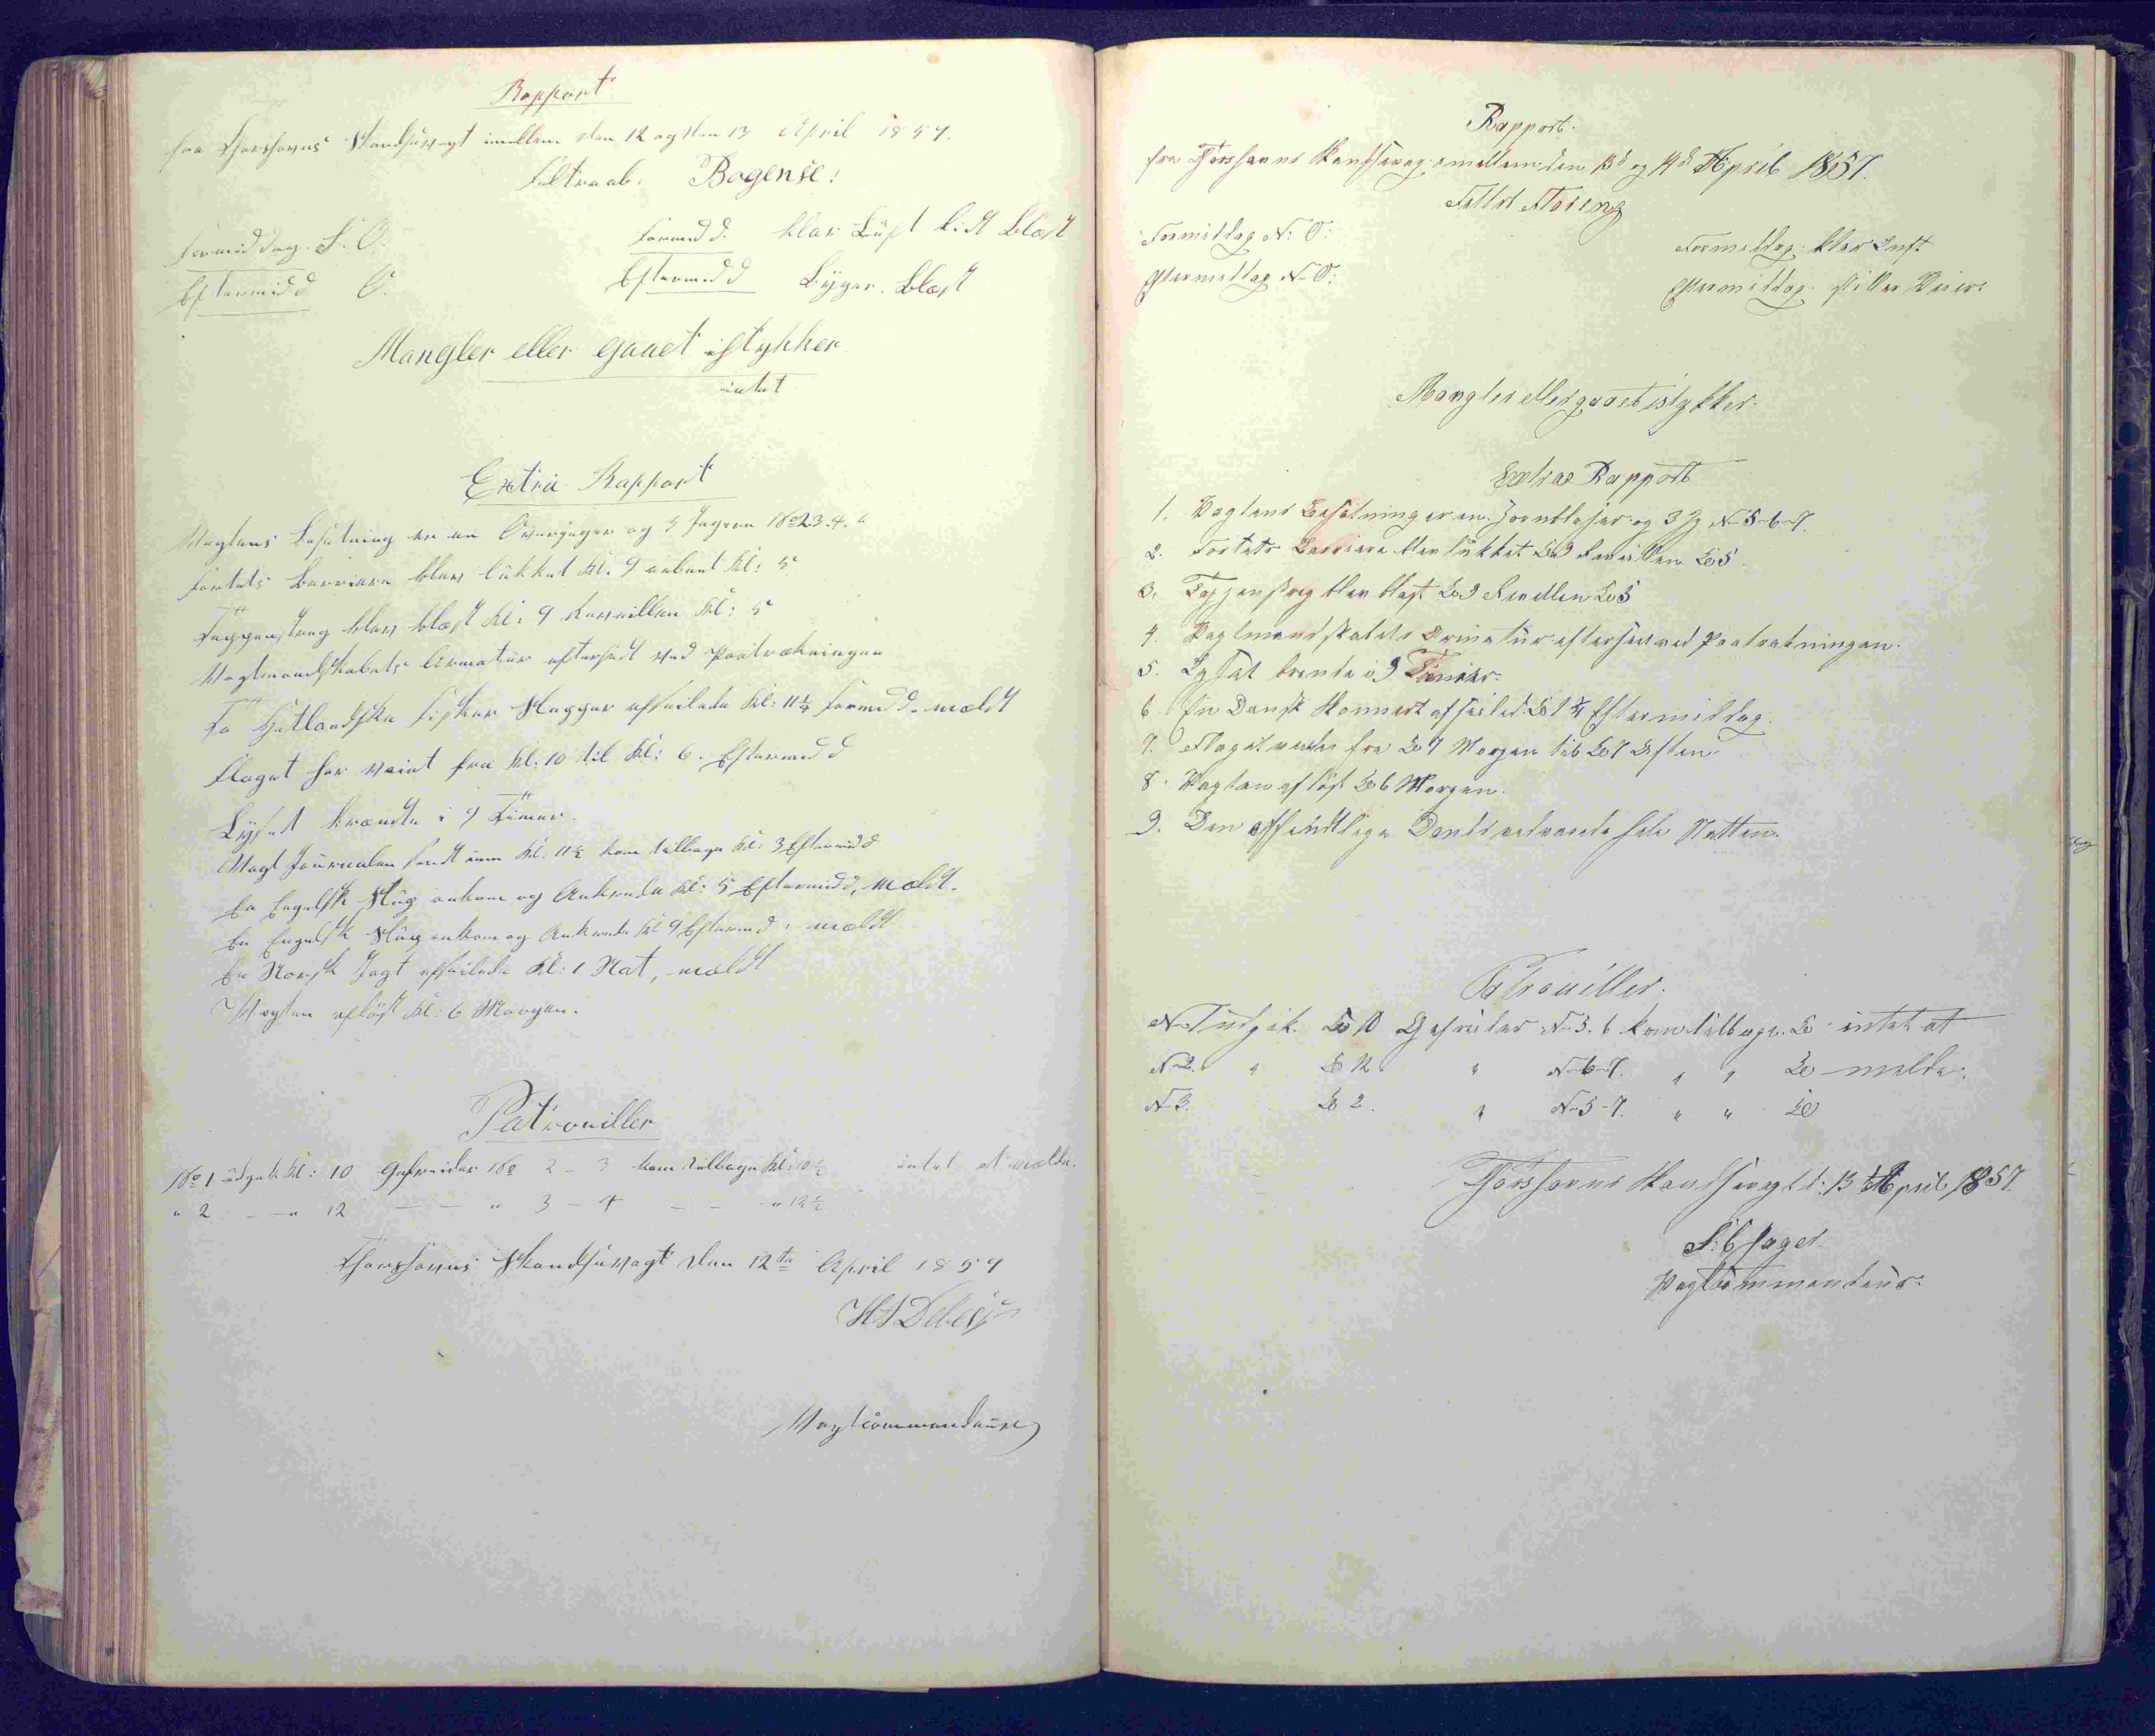 Rapport
fra Thorshavns Skandsevagt imellem den 12 og den 13 April 1857.
Feltraab. Bogense!
Formiddag. S. O.
Formidd. klar Luft lidt Blæst
Eftermidd O.
Eftermidd Byger. Blæst
Mangler eller gaaet istykker
intet
Extra Rapport
Vagtens Besætning er en Overjæger og 3 Jægere No 2.3.4.
Fortets Barriere blev lukket Kl. 9 aabnet Kl: 5
Tappenstreg blev blæst Kl: 9 Reveillen Kl: 5
Vagtmandskabets Armatur efterseet ved Paatrækningen
To Hetlandske Fisker Slupper afseilede Kl: 11½ Formidd. meldt
Flaget har vaiet fra Kl: 10 til Kl: 6. Eftermidd
Lyset brændte i 9 Timer.
Vagt Journalen sendt ind Kl: 11½ kom tilbage Kl: 3 Eftermidd
En Engelsk Slup ankom og Ankrede Kl: 5 Eftermidd, meldt.
En Engelsk Slup ankom og Ankrede Kl 9 Eftermd: meldt
En Norsk Jagt afseilede Kl: 1 Nat, meldt
Vagten afløst Kl: 6 Morgen.
Patrouiller
No 1 udgik Kl: 10 Gefreider No 2 - 3 kom tilbage Kl: 10½ intet at melde.
" 2 — " 12 — — " 3 - 4 — — " 12½
Thorshavns Skandsevagt den 12te April 1857
Debes
Vagtcommandeur
Rapport.
fra Thorshavns Skandsevag emellem den 13d og 14d April 1857.
Formiddag N: O:
Formiddag: klar Luft
Eftermiddag N. O:
Eftermiddag: stille Veier
Mangler eller gaaet istykker
Extrae Rapport
1. Vagtens Besætning er en Hornblæser og 3 Jg N 5-6-7.
2. Fortets Barriere blev lukket Kl 9 Reveillen Kl 5.
3. Tappenstreg blev blæst Kl 9 Revellen Kl 5
4. Vagtmandskabets Armatur efterseet ved Paatrækningen.
5. Lyset brende i 9 Timer.
6. En Dansk Skonnert afseiled Kl 1¼ Eftermiddag.
7. Flaget vaiede fra Kl 7 Morgen til Kl 7 Aften.
8. Vagten afløst Kl 6 Morgen.
9. Den hele Natten.
Patrouiller.
N 1 udgik. Kl 10 Gefreider N 5. 6 kom tilbage. Kl intet at
N 2. " Kl 12. " N 6-7. " " Kl melde.
N 3. Kl 2. " N 5-7. " " Kl
Thorshavns Skandsevagt d: 13 April 1857.
Vagtkommandeur.